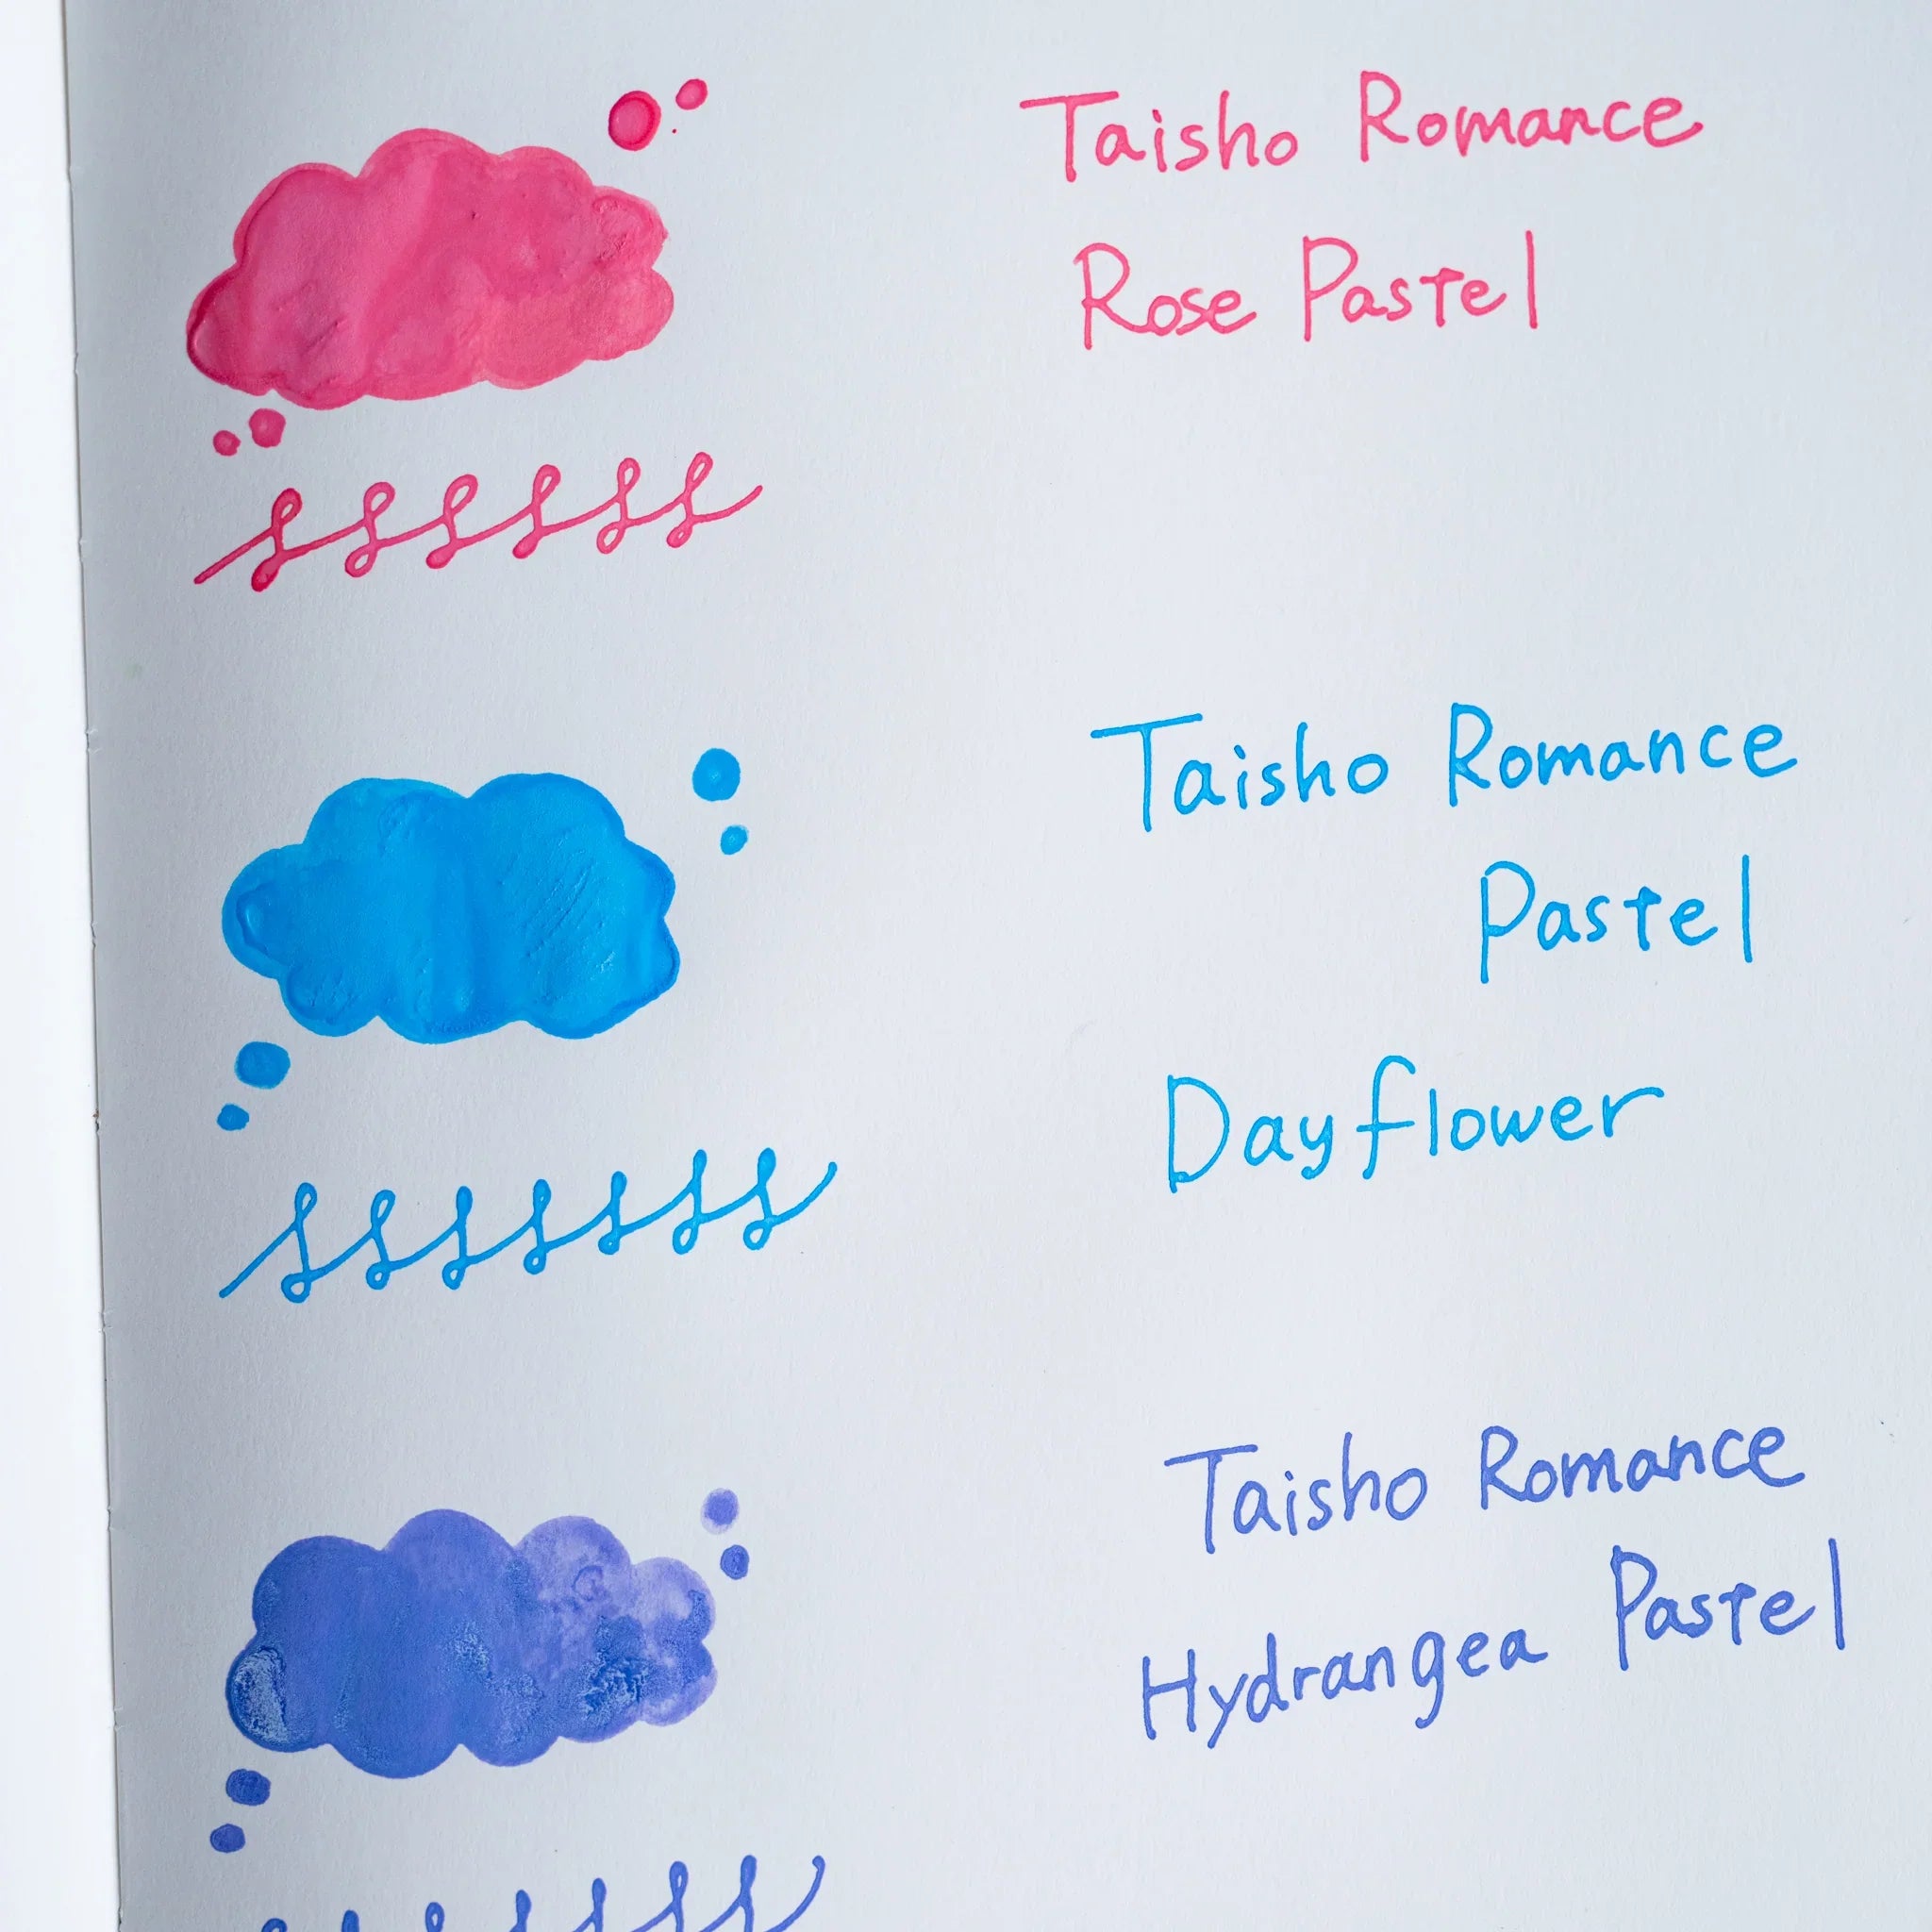 Taisho Romance
Rose Pastel
Taisho Romance
Pastel
Dayflower
Taisho Romance
Hydrangea Pastel